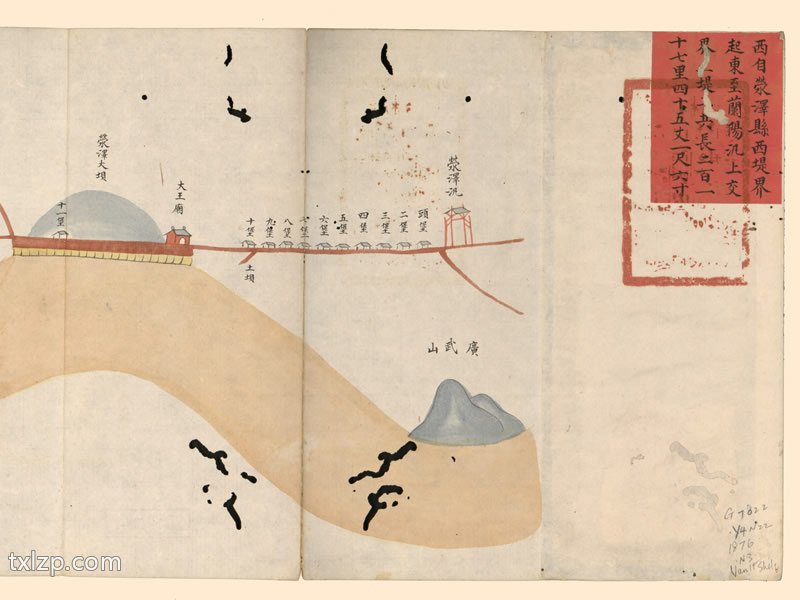 西自滎澤縣西堤界
起東至蘭陽汛上交
界堤長二百一
十七里四十五丈一尺六寸
滎澤汛
頭堡
二堡
三堡
四堡
五堡
六堡
七堡
八堡
九堡
十堡
土壩
大王廟
滎澤大壩
十一堡
廣武山
G7822
.Y4N22
1876
.N3
txlzp.com